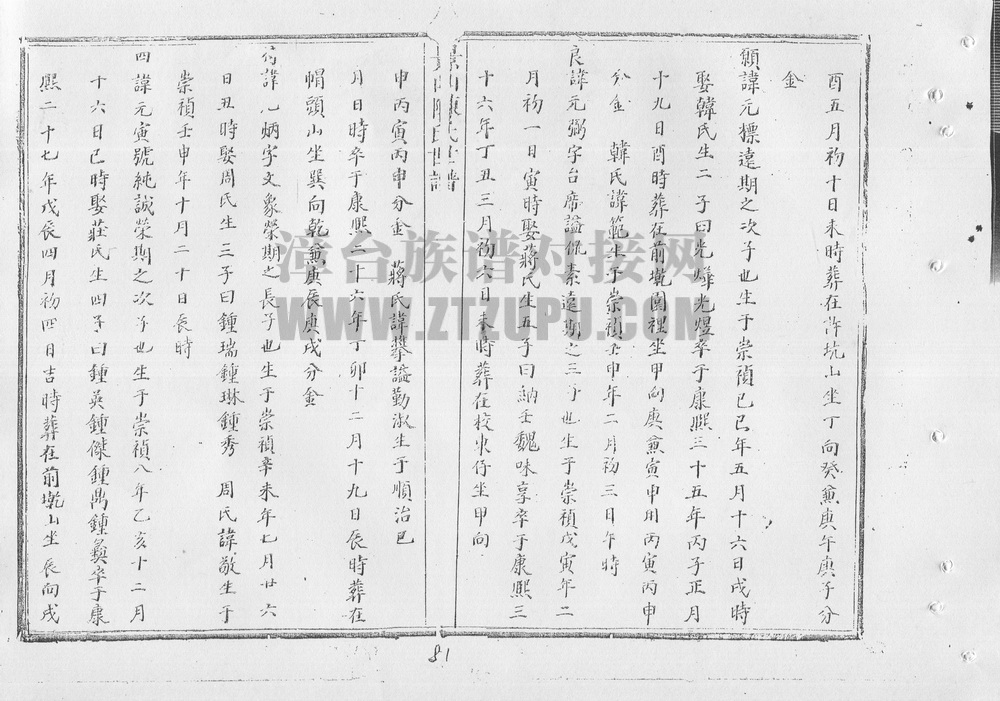 酉五月初十日未時葬在許坑山坐丁向癸兼庚午庚子分
金
諱元標遠期之次子也生于崇禎己巳年五月十六日戌時
娶韓氏生二子曰光燁光煜卒于康熙三十五年丙子正月
十九日酉時葬在前墘園裡坐甲向庚兼寅申用丙寅丙申
分金 韓氏諱範生于崇禎壬申年二月初三日午時
良諱元弼字台席謚侃素遠期之三子也生于崇禎戊寅年二
月初一日寅時娶蔣氏生五子曰納壬魏味享卒于康熙三
十六年丁丑三月初六日未時葬在校東仔坐甲向
陳氏世譜
申丙寅丙申分金 蔣氏諱謚勤淑生于順治巳
月日時卒于康熙二十六年丁卯十二月十九日辰時葬在
帽頭山坐巽向乾兼庚辰庚戌分金
諱元炳字文象榮期之長子也生于崇禎辛未年七月廿六
日丑時娶周氏生三子曰鍾瑞鍾琳鍾秀 周氏諱敬生于
崇禎壬申年十月二十日辰時
四諱元寅號純誠榮期之次子也生于崇禎八年乙亥十二月
十六日巳時娶莊氏生四子曰鍾英鍾傑鍾鼎鍾彝卒于康
熙二十七年戊辰四月初四日吉時葬在前墘山坐辰向戌
81
漳台族谱对接网
WWW.ZTZUPU.COM